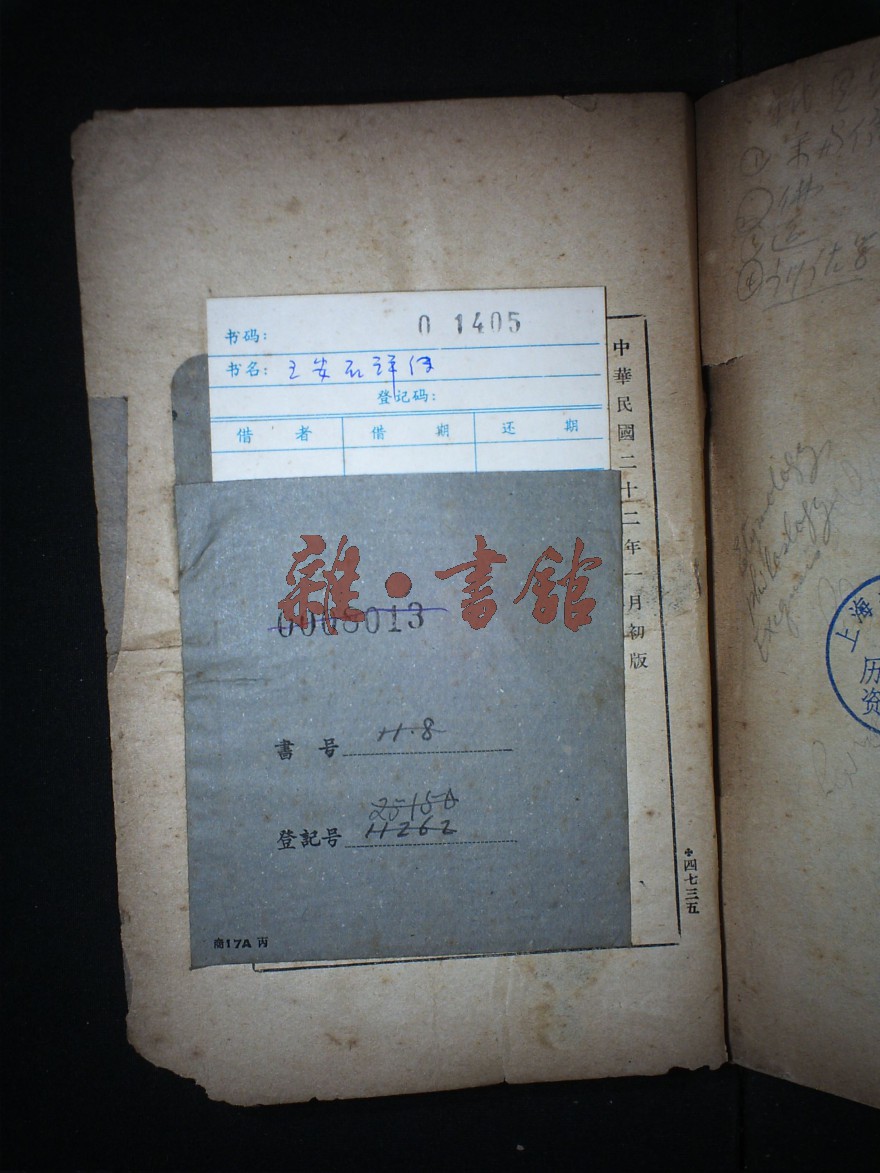 书码: 0 1405
书名: 王安石评传
登记码:
借者 借期 还期
中華民國二十二年一月初版
雜·書館
0008013
書号 11.8
25150
登記号 11262
商17A 丙
四七三五
philology
上海
历
资